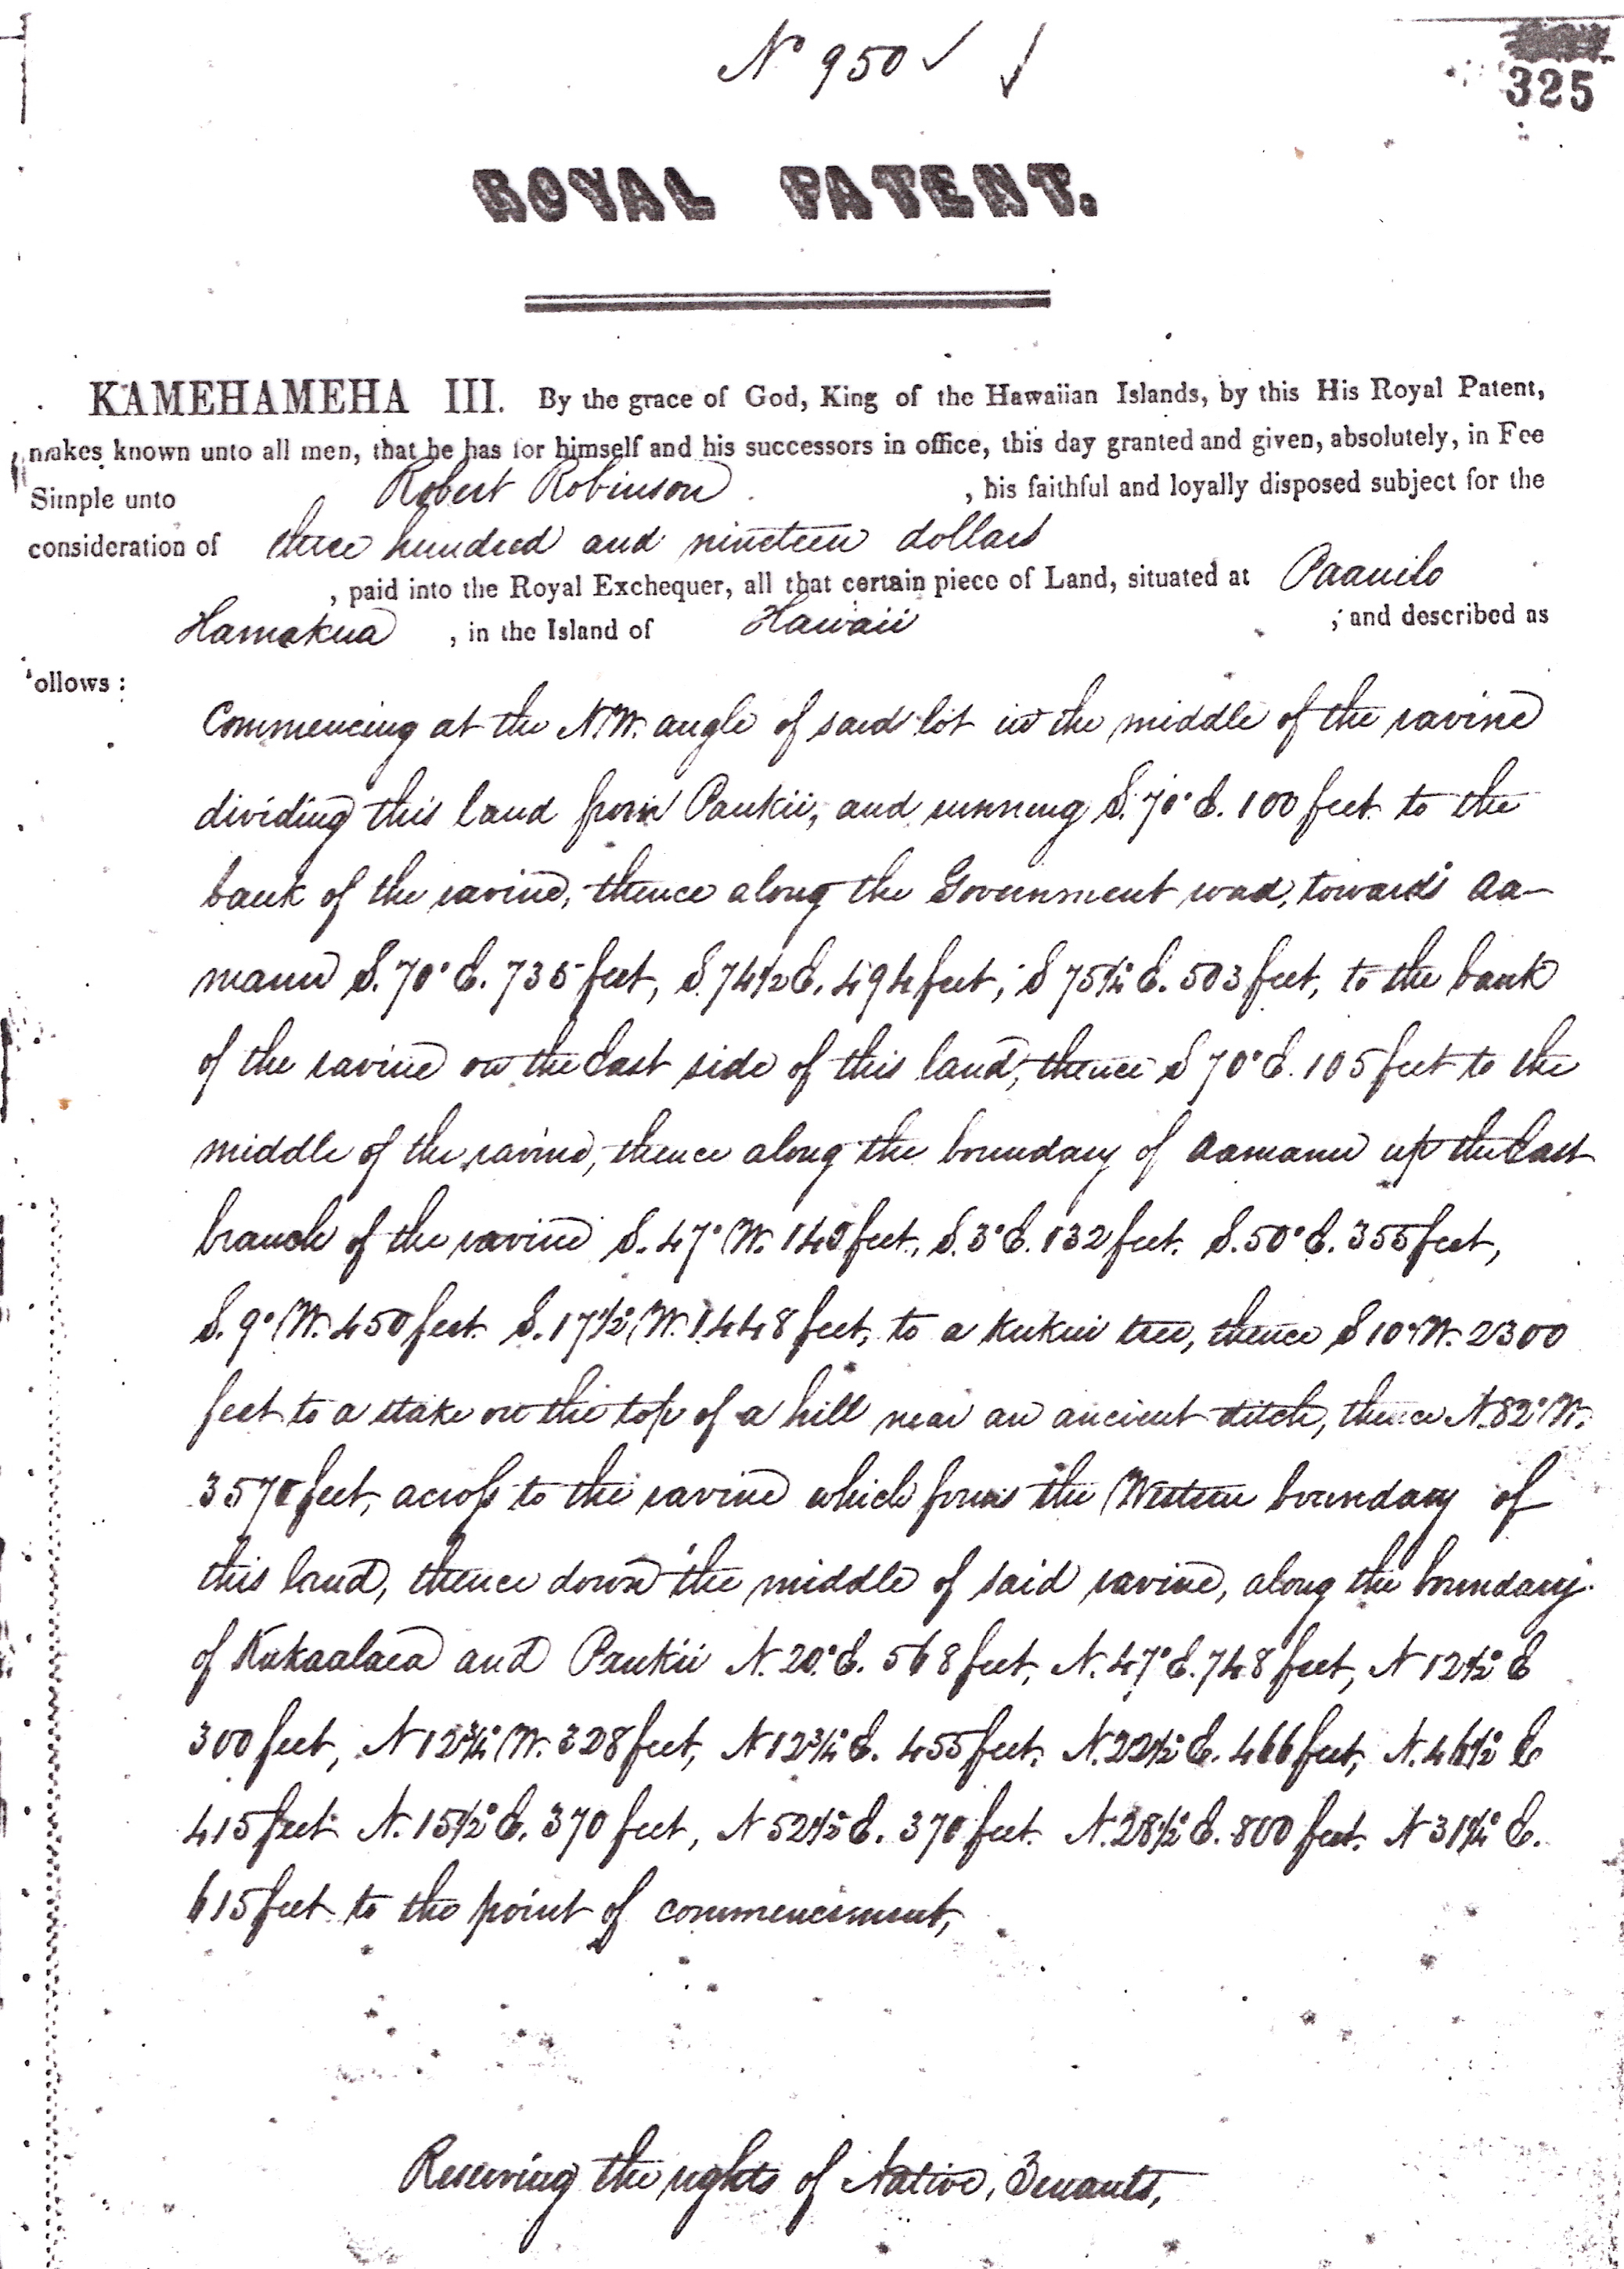 No 950
325
ROYAL PATENT.
KAMEHAMEHA III. By the grace of God, King of the Hawaiian Islands, by this His Royal Patent,
makes known unto all men, that he has for himself and his successors in office, this day granted and given, absolutely, in Fee
Simple unto Robert Robinson , his faithful and loyally disposed subject for the
consideration of three hundred and nineteen dollars
, paid into the Royal Exchequer, all that certain piece of Land, situated at Paauilo
Hamakua , in the Island of Hawaii ; and described as
ollows :
Commencing at the N.W. angle of said lot in the middle of the ravine
dividing this land from Paukii, and running S. 70° E. 100 feet to the
bank of the ravine, thence along the Government road, towards Aa-
manu S. 70° E. 735 feet, S. 74½ E. 494 feet, S 75¼° E. 503 feet, to the bank
of the ravine on the East side of this land, thence S 70° E. 105 feet to the
middle of the ravine, thence along the boundary of Aamanu up the East
branch of the ravine S. 47° W. 145 feet, S. 3° E. 132 feet. S. 50° E. 355 feet,
S. 9° W. 450 feet S. 17½° W. 1448 feet, to a Kukui tree, thence S 10° W. 2300
feet to a stake on the top of a hill near an ancient ditch, thence N. 82° W.
3570 feet, across to the ravine which forms the Western boundary of
this land, thence down the middle of said ravine, along the boundary
of Kukaalaea and Paukii N. 20° E. 568 feet, N. 47° E. 748 feet, N 12½° E
300 feet, N 12¾° W. 328 feet, N 12¾° E. 455 feet, N. 22½° E. 466 feet, N. 46½° E
415 feet N. 15½° E. 370 feet, N 52½° E. 370 feet. N. 28½° E. 800 feet. N 31¼° E.
615 feet to the point of commencement,
Reserving the rights of Native, Tenants,